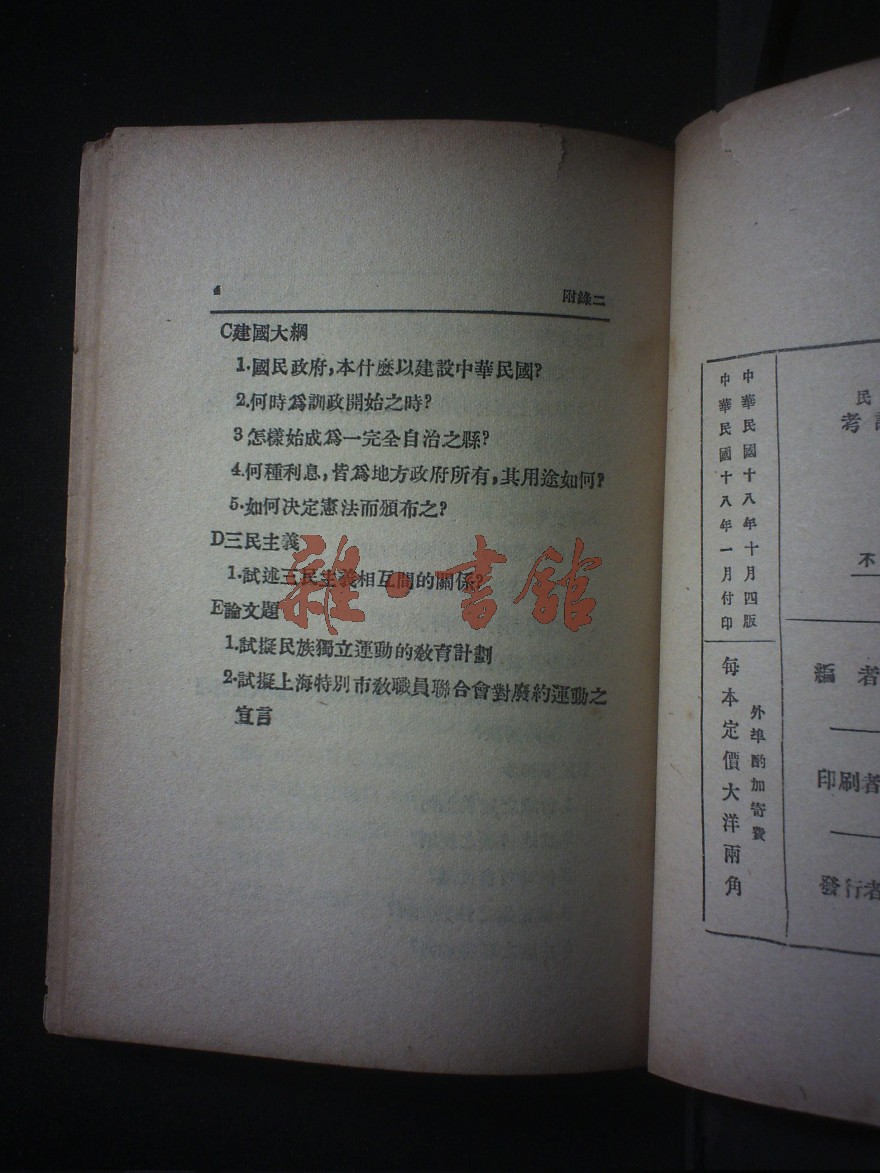 4 附錄二
C建國大綱
1.國民政府,本什麽以建設中華民國?
2.何時爲訓政開始之時?
3怎樣始成爲一完全自治之縣?
4.何種利息,皆爲地方政府所有,其用途如何?
5.如何决定憲法而頒布之?
D三民主義
1.試述三民主義相互間的關係?
E論文題
1.試擬民族獨立運動的敎育計劃
2.試擬上海特別市敎職員聯合會對廢約運動之
宣言
雜·書館
民
考
不
編者
印刷者
發行者
中華民國十八年十月四版
中華民國十八年一月付印
外埠酌加寄費
每本定價大洋兩角